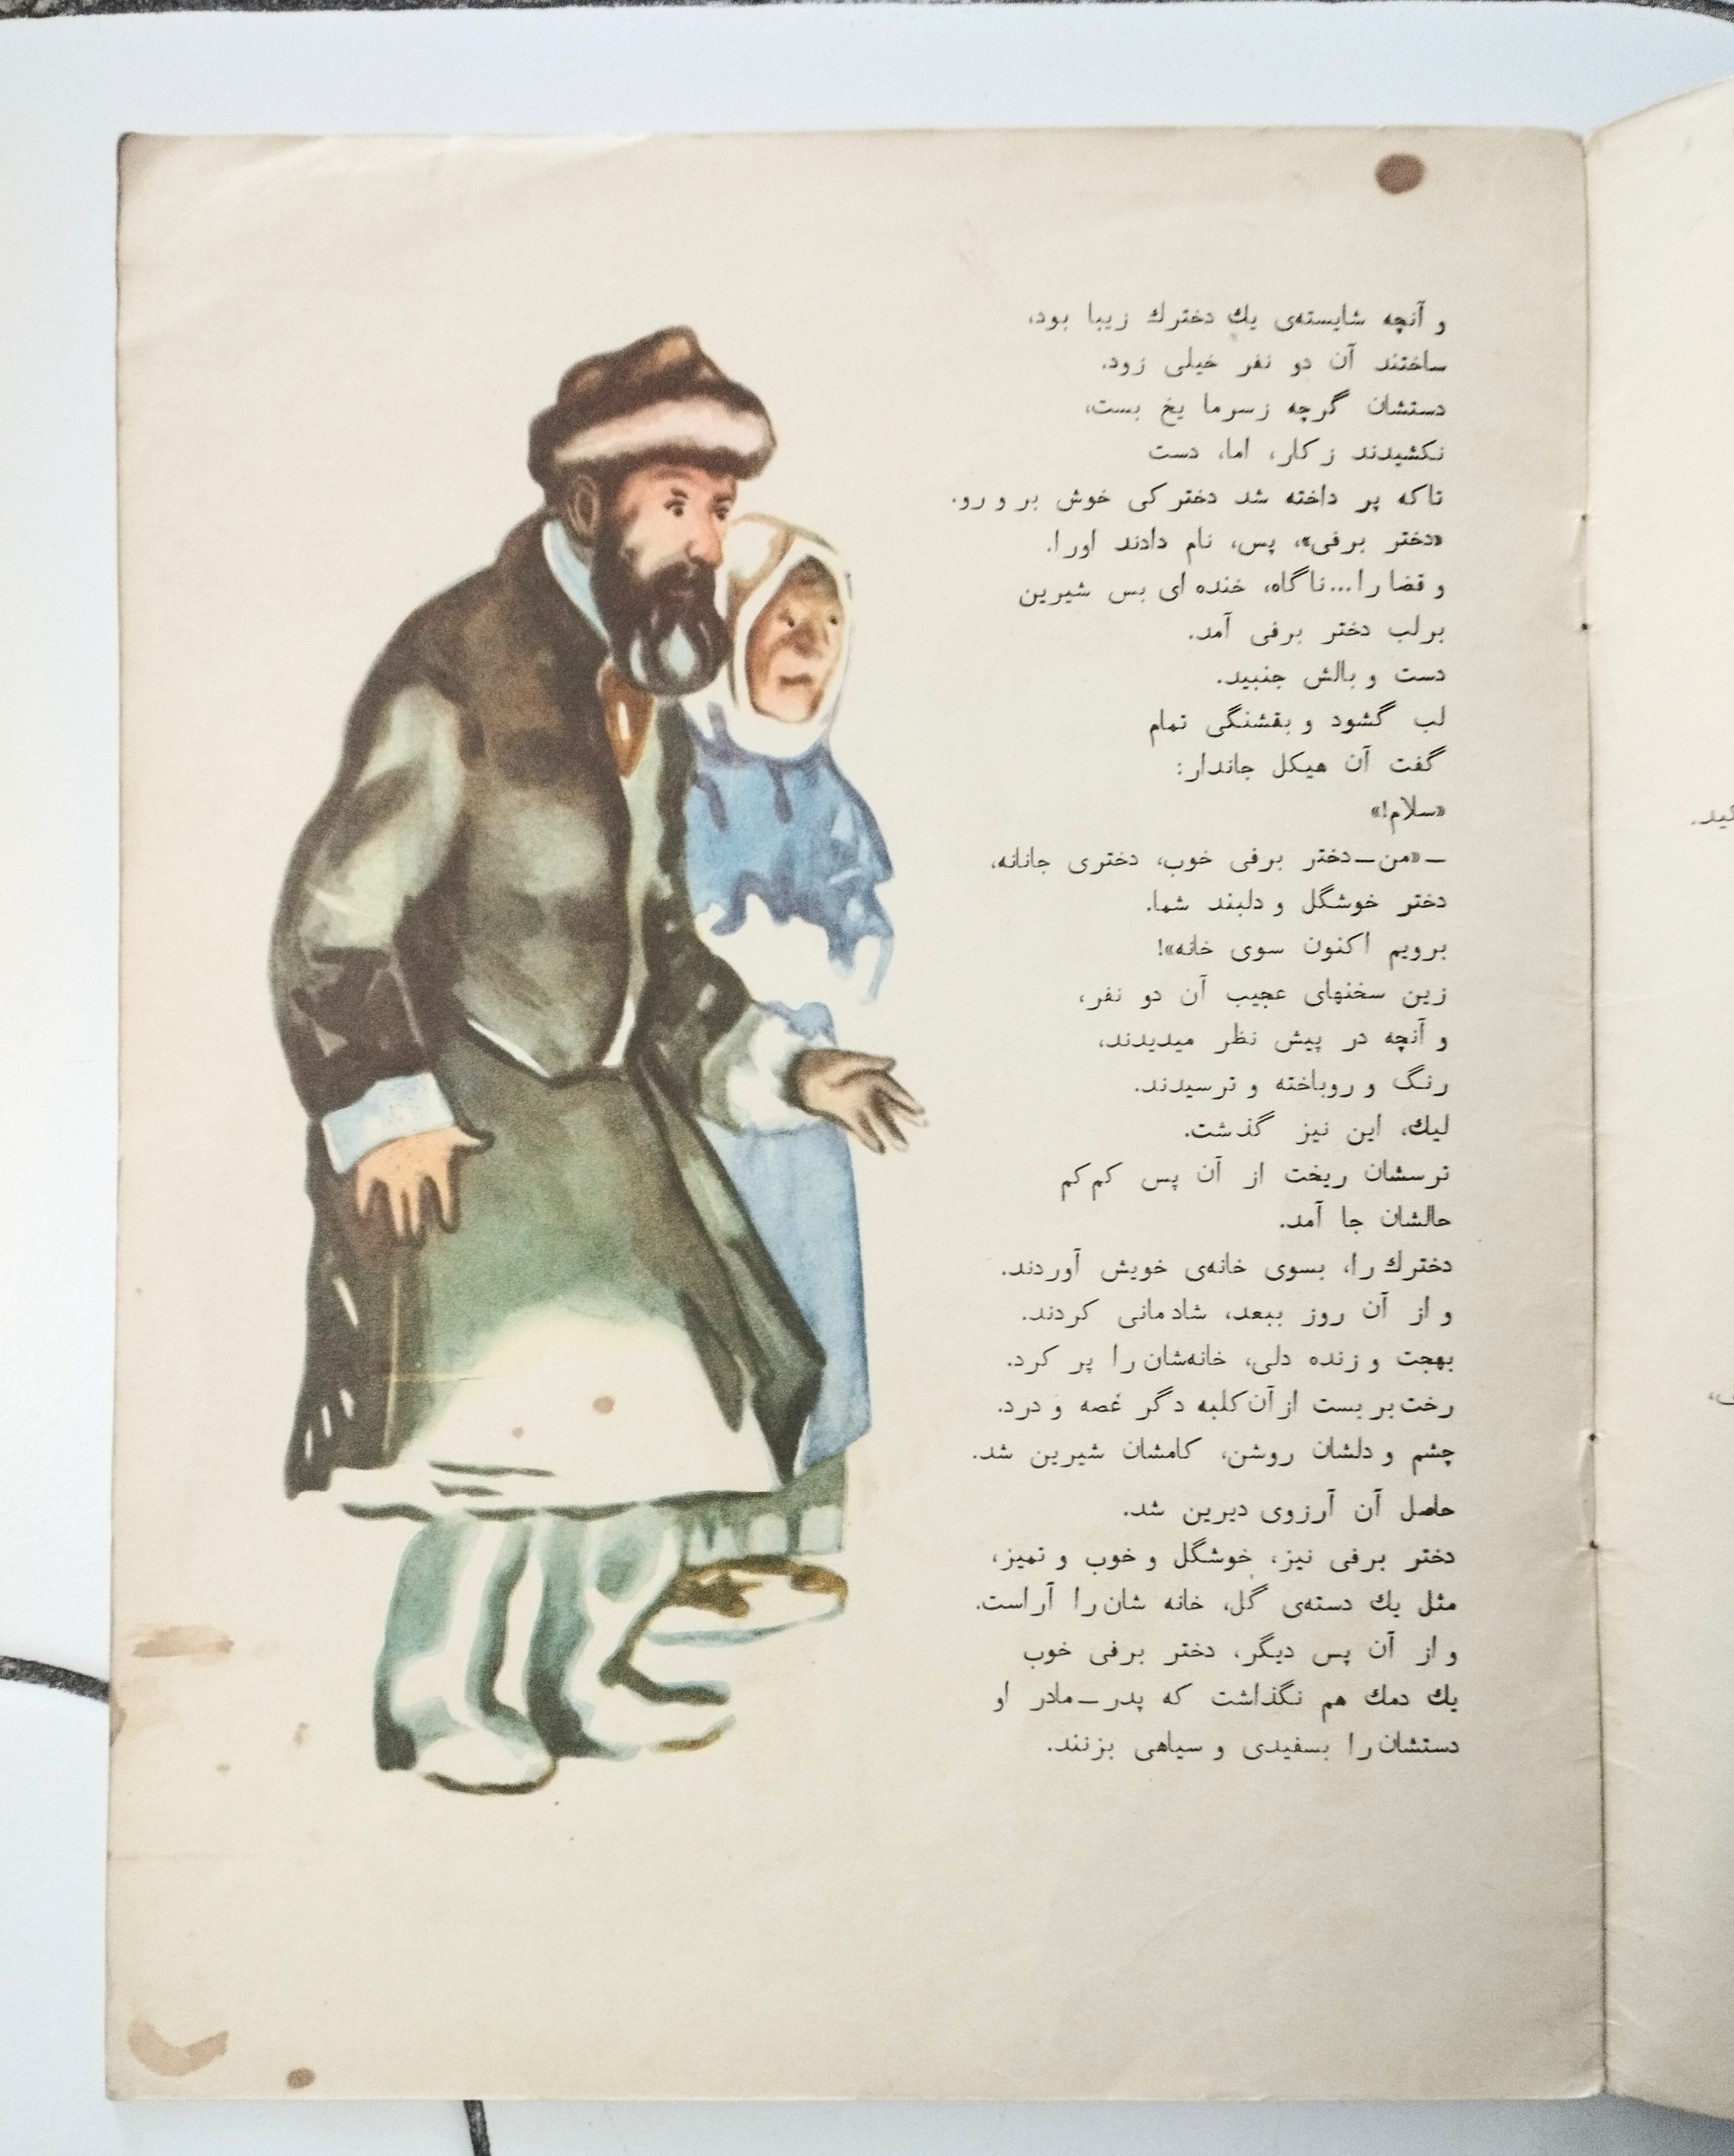 و آنچه شایسته‌ی یك دخترك زیبا بود،
ساختند آن دو نفر خیلی زود.
دستشان گرچه زسرما یخ بست،
نکشیدند ز کار، اما، دست
تاکه پر داخته شد دختر کی خوش بر و رو.
«دختر برفی»، پس، نام دادند اورا.
و قضا را...ناگاه، خنده ای بس شیرین
برلب دختر برفی آمد.
دست و بالش جنبید.
لب گشود و بقشنگی تمام
گفت آن هیکل جاندار:
«سلام!»
ــ «من ــ دختر برفی خوب، دختری جانانه،
دختر خوشگل و دلبند شما.
برویم اکنون سوی خانه»!
زین سخنهای عجیب آن دو نفر،
و آنچه در پیش نظر میدیدند،
رنگ و روباخته و ترسیدند.
لیك، این نیز گذشت.
ترسشان ریخت از آن پس کم کم
حالشان جا آمد.
دخترك را، بسوی خانه‌ی خویش آوردند.
و از آن روز ببعد، شادمانی کردند.
بهجت و زنده دلی، خانه‌شان را پر کرد.
رخت بر بست از آن کلبه دگر غصه و درد.
چشم و دلشان روشن، کامشان شیرین شد.
حاصل آن آرزوی دیرین شد.
دختر برفی نیز، خوشگل و خوب و تمیز،
مثل یك دسته‌ی گل، خانه شان را آراست.
و از آن پس دیگر، دختر برفی خوب
یك دمك هم نگذاشت که پدر ــ مادر او
دستشان را بسفیدی و سیاهی بزنند.